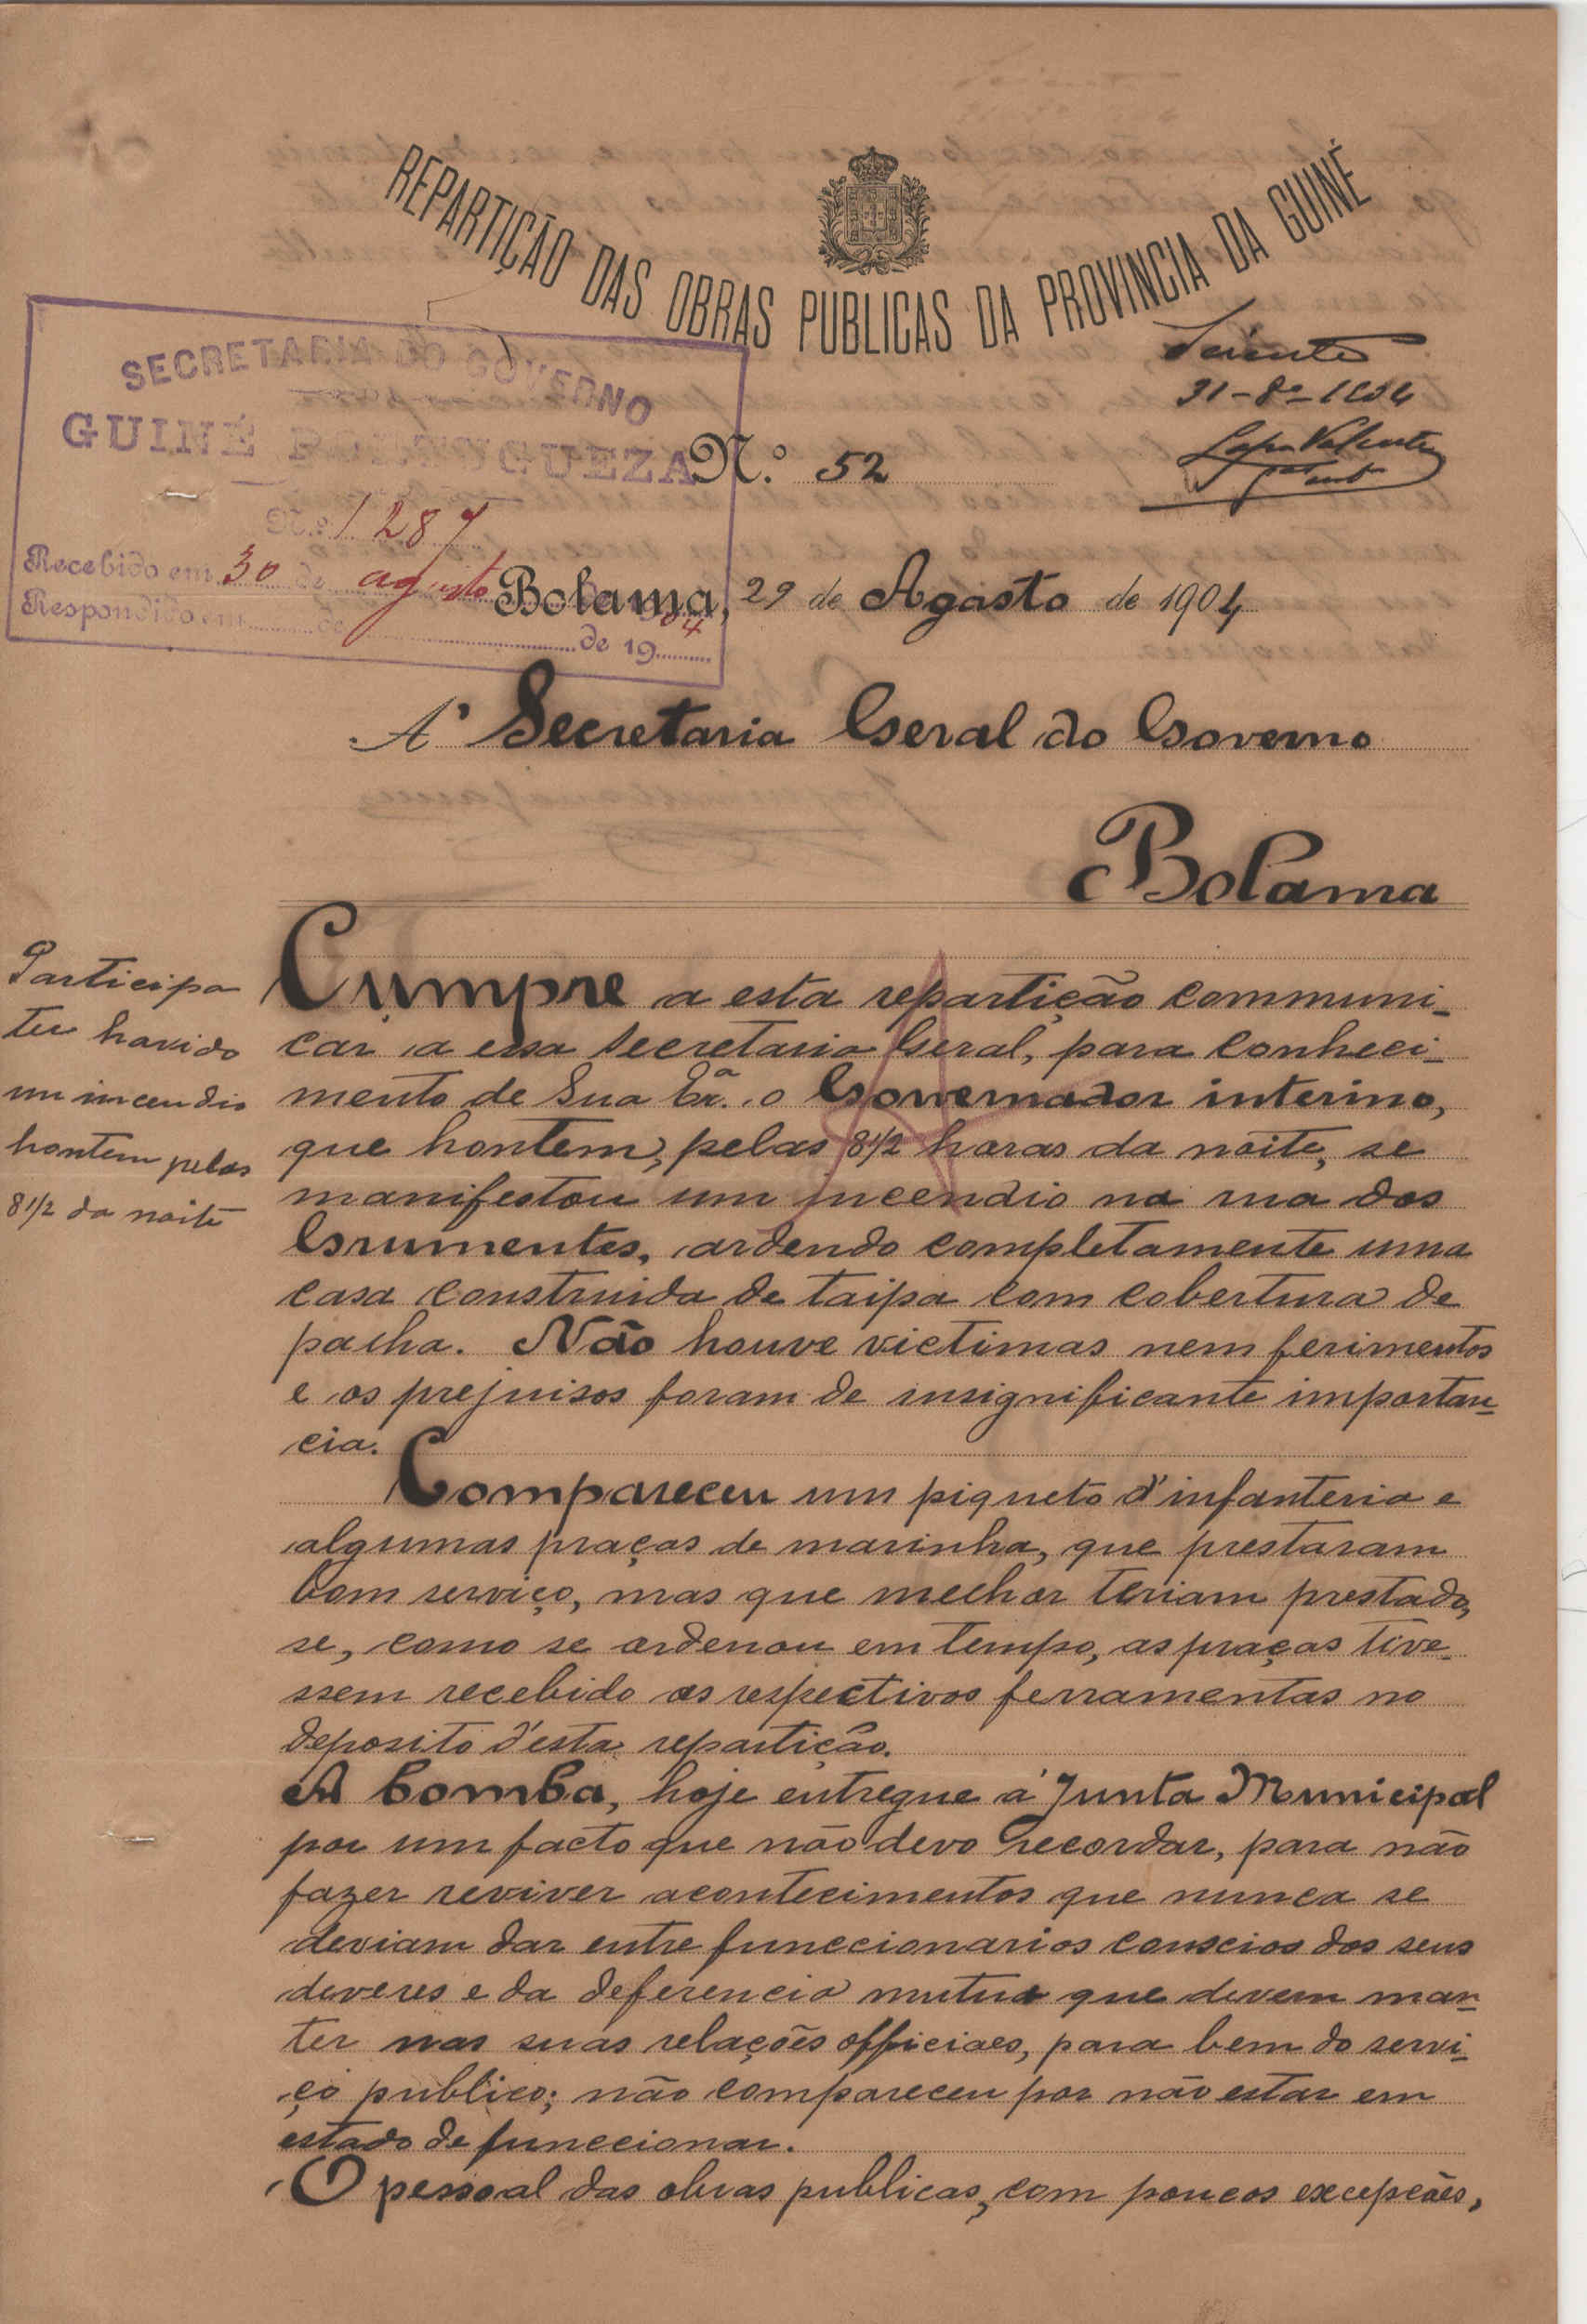 REPARTIÇÃO DAS OBRAS PUBLICAS DA PROVINCIA DA GUINÉ
Sciente
31-8º-1904
Valente
SECRETARIA DO GOVERNO
GUINÉ PORTUGUEZA
N.º 1287
Recebido em 30 de agosto
de 1904
Respondido em de
de 19
N.º 52
Bolama, 29 de Agosto de 1904
A' Secretaria Geral do Governo
Bolama
Participa
ter havido
um incendio
hontem pelas
8 1/2 da noite
Cumpre a esta repartição communi-
car a essa Secretaria Geral, para conheci-
mento de Sua Exª. o Governador interino,
que hontem, pelas 8 1/2 horas da noite, se
manifestou um incendio na rua dos
Grumentes, ardendo completamente uma
casa construida de taipa com cobertura de
palha. Não houve victimas nem ferimentos
e os prejuisos foram de insignificante importan-
cia.
Compareceu um piquete d'infanteria e
algumas praças de marinha, que prestaram
bom serviço, mas que melhor teriam prestado,
se, como se ordenou em tempo, as praças tive-
ssem recebido as respectivas ferramentas no
deposito d'esta repartição.
A bomba, hoje entregue á Junta Municipal
por um facto que não devo recordar, para não
fazer reviver acontecimentos que nunca se
deviam dar entre funccionarios conscios dos seus
deveres e da deferencia mutua que devem man-
ter nas suas relações officiaes, para bem do servi-
ço publico; não compareceu por não estar em
estado de funccionar.
O pessoal das obras publicas, com poucas excepções,